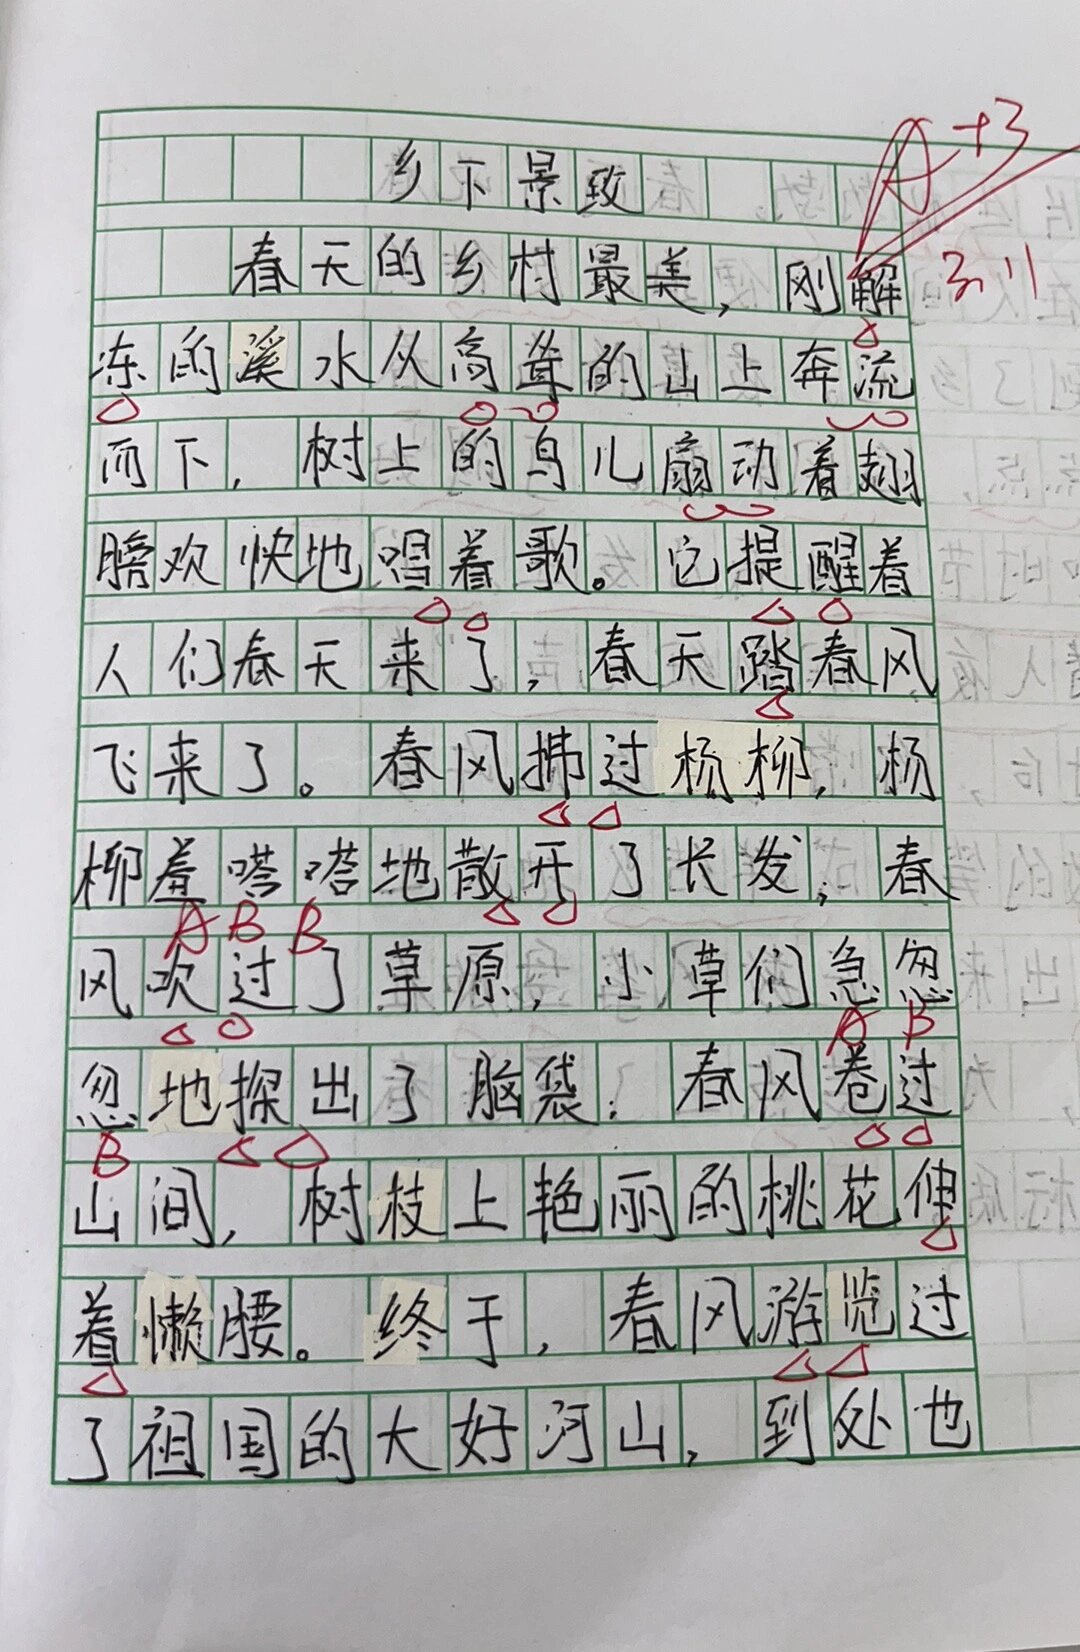 乡下景致
A+3
春天的乡村最美，刚解
3.11
冻的溪水从高耸的山上奔流
而下，树上的鸟儿扇动着翅
膀欢快地唱着歌。它提醒着
人们春天来了，春天踏春风
飞来了。春风拂过杨柳，杨
柳羞嗒嗒地散开了长发；春
A B B
风吹过了草原，小草们急忽
A B
忽地探出了脑袋；春风卷过
B
山间，树枝上艳丽的桃花伸
着懒腰。终于，春风游览过
了祖国的大好河山，到处也